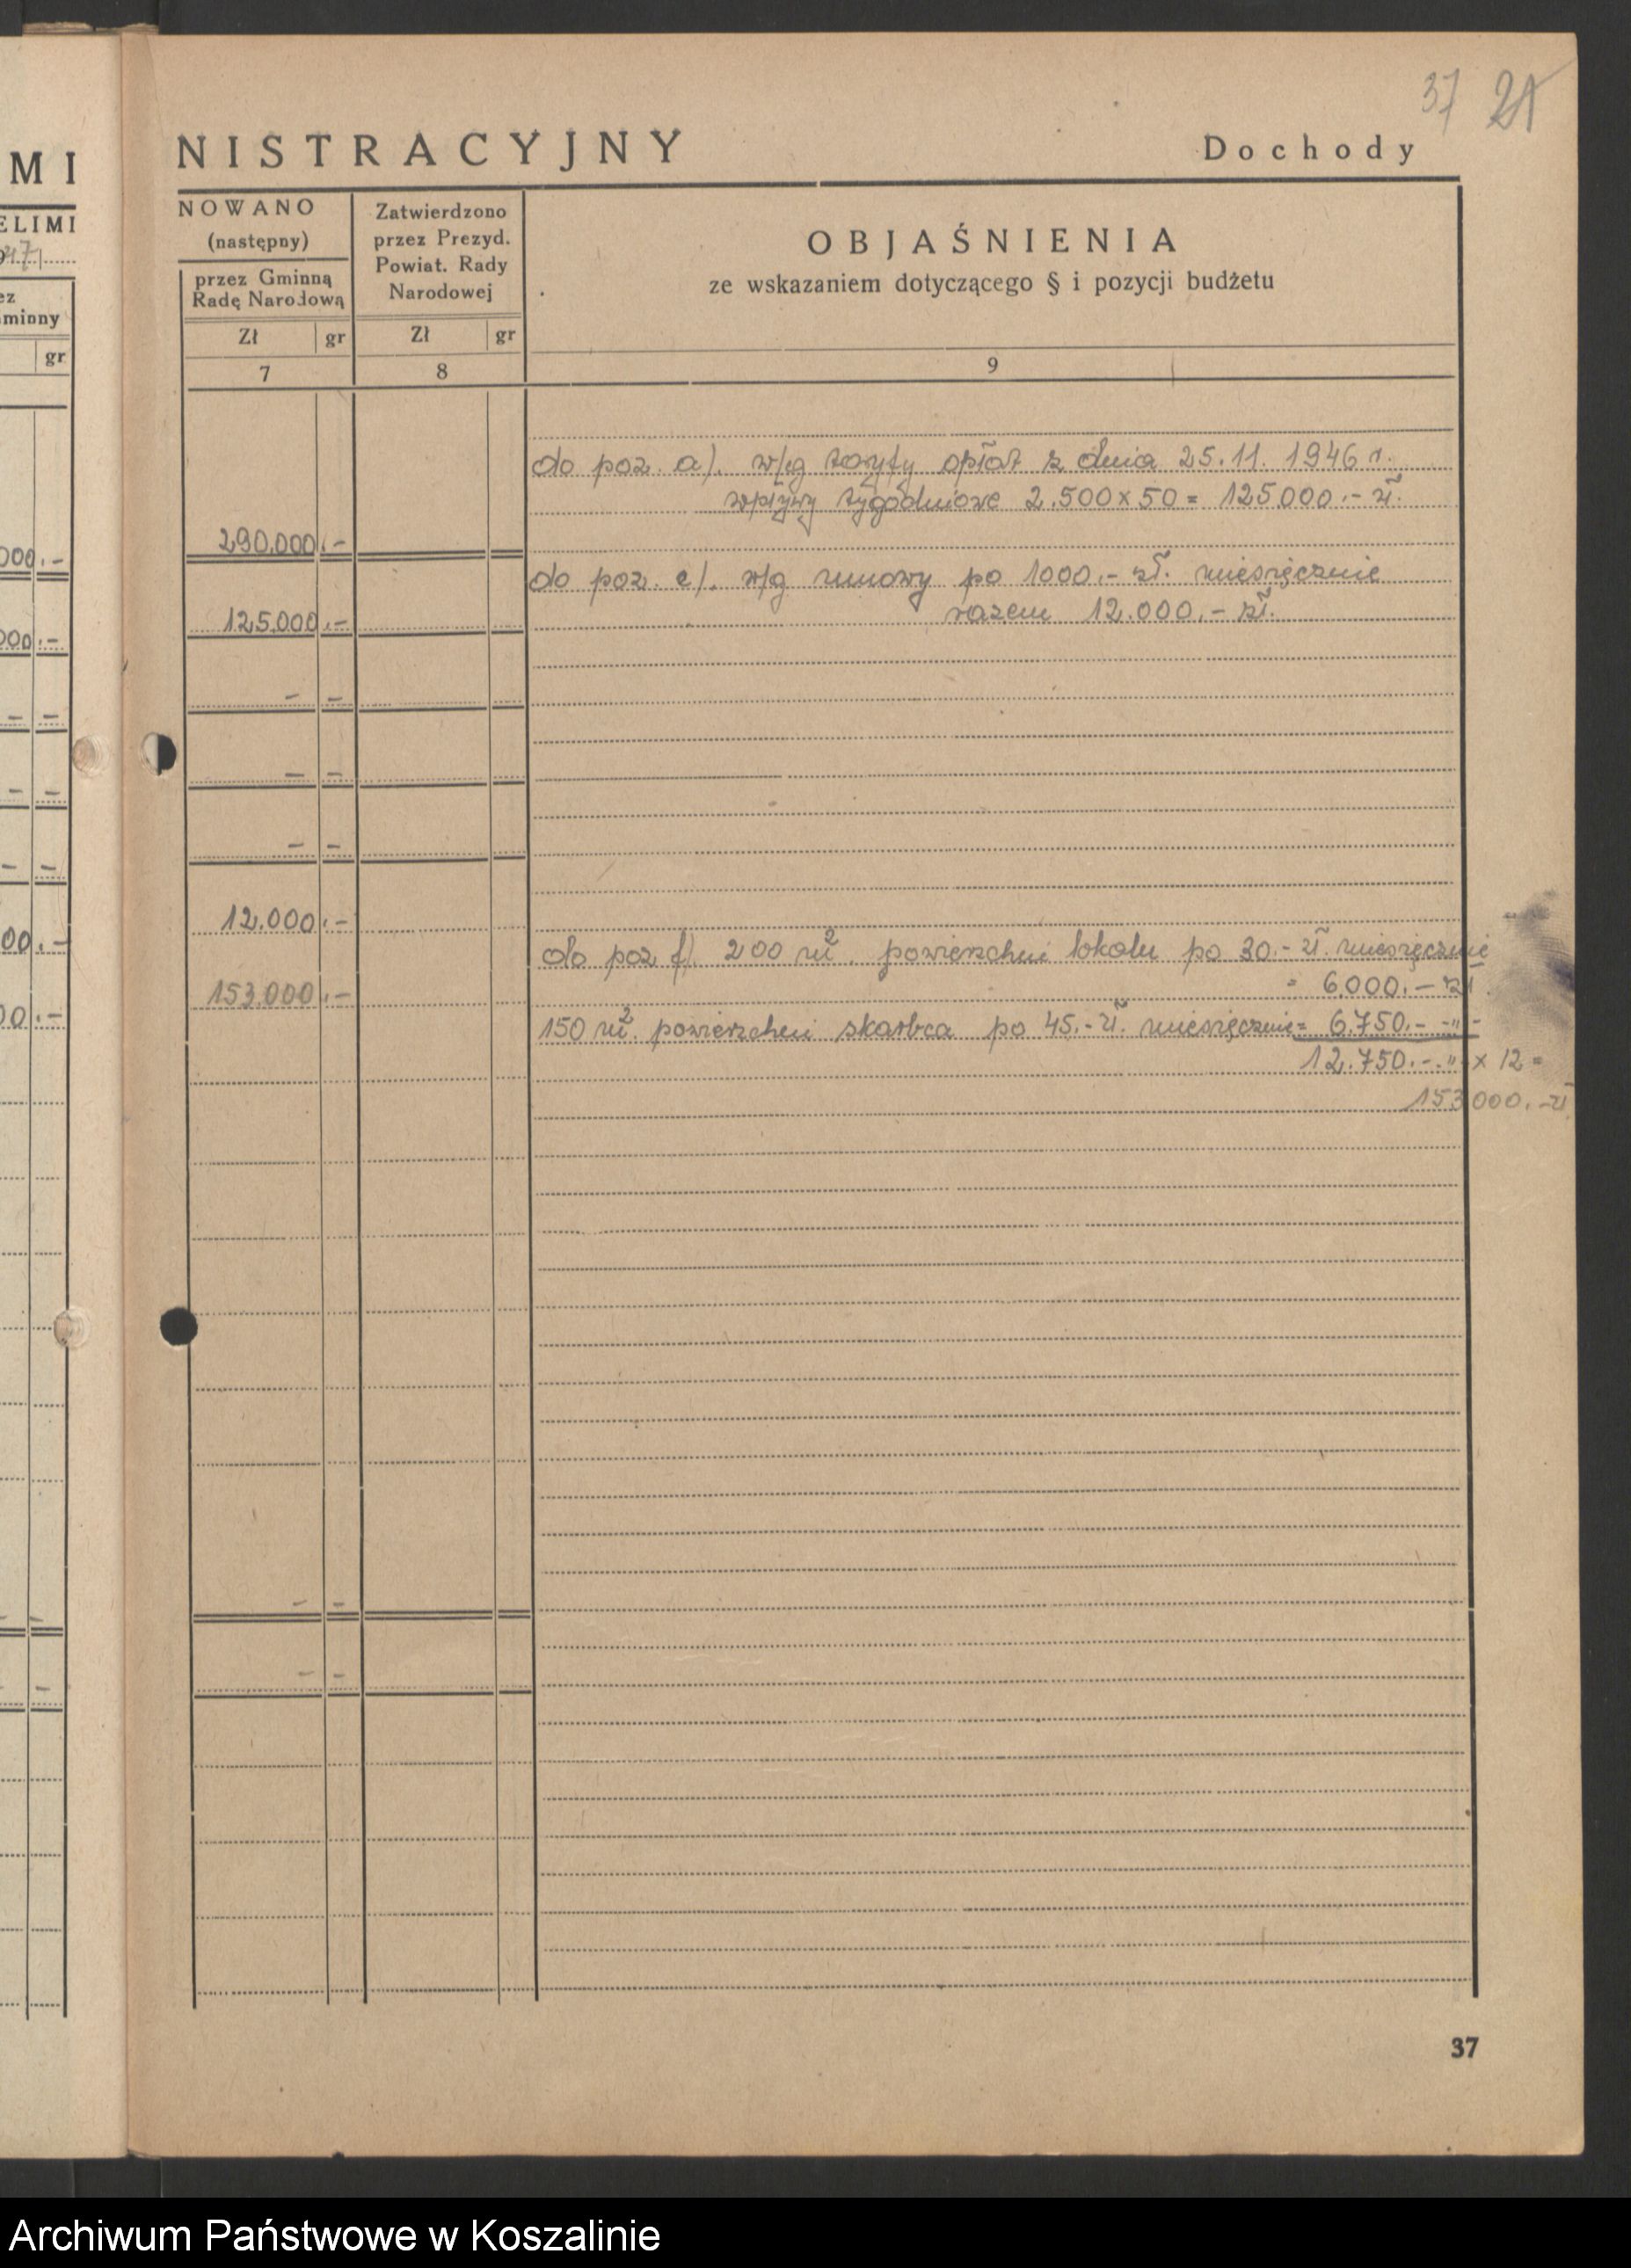 37 21
MI
NISTRACYJNY
Dochody
ELIMI
47
ez
minny
gr
NOWANO
(następny)
przez Gminną
Radę Narodową
Zł gr
7
Zatwierdzono
przez Prezyd.
Powiat. Rady
Narodowej
Zł gr
8
OBJAŚNIENIA
ze wskazaniem dotyczącego § i pozycji budżetu
9
do poz. a). w/g taryfy opłat z dnia 25.11.1946 r.
wpływy tygodniowe 2.500 x 50 = 125.000.- zł.
000.-
290.000.-
do poz. e). w/g umowy po 1000.- zł. miesięcznie
razem 12.000.- zł.
000.-
125.000.-
- -
- -
- -
- -
- -
- -
00.-
12.000.-
do poz f) 200 m². powierzchni lokalu po 30.- zł. miesięcznie
= 6.000.- zł.
00.-
153.000.-
150 m². powierzchni skarbca po 45.- zł. miesięcznie = 6.750.- -"-
12.750.- -"- x 12 =
153.000.- zł.
- -
- -
- -
- -
37
Archiwum Państwowe w Koszalinie